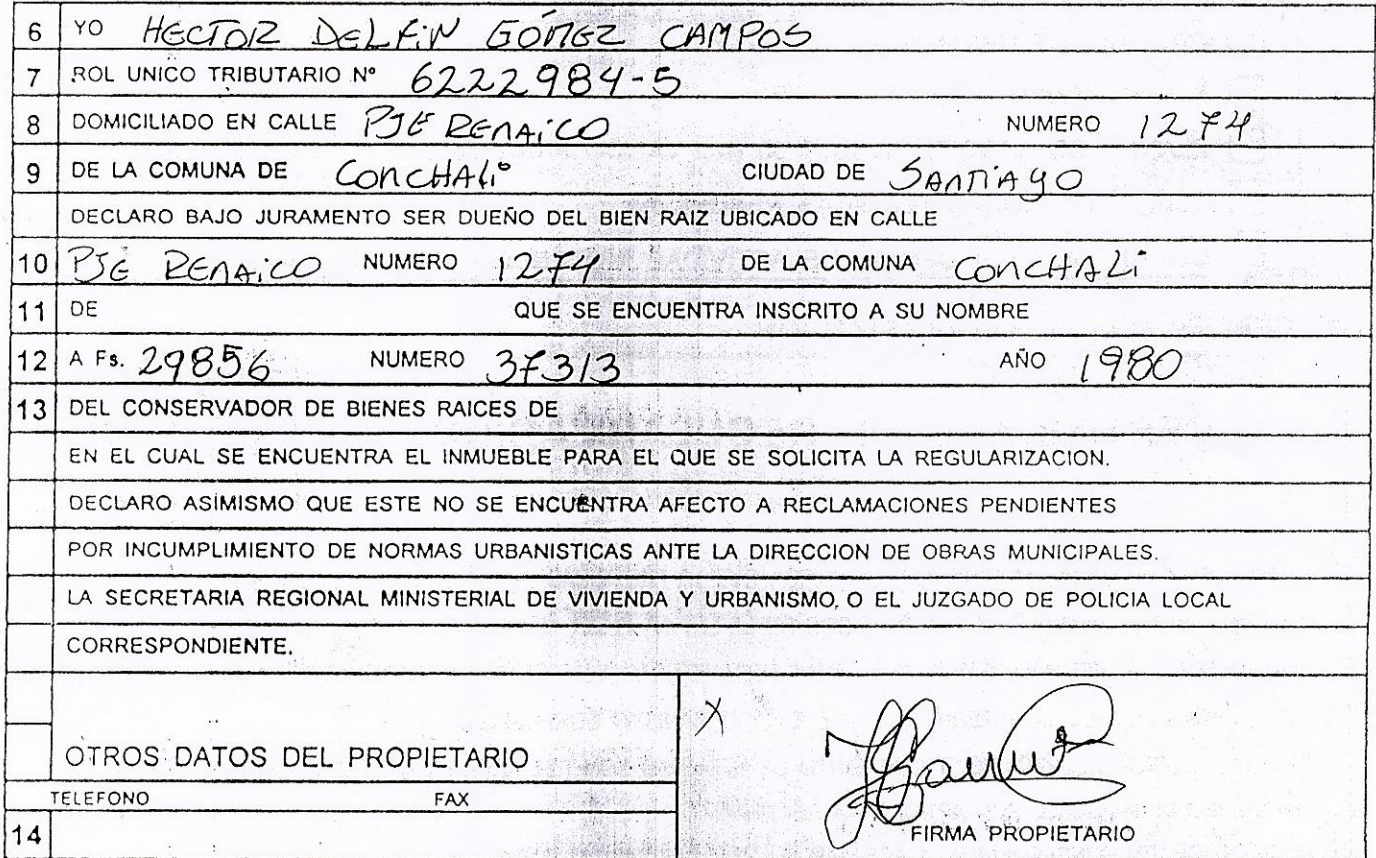 6 YO HECTOR DELFIN GÓMEZ CAMPOS
7 ROL UNICO TRIBUTARIO Nº 6222984-5
8 DOMICILIADO EN CALLE PJE RENAiCO NUMERO 1274
9 DE LA COMUNA DE CONCHALi CIUDAD DE SANTiAGO
DECLARO BAJO JURAMENTO SER DUEÑO DEL BIEN RAIZ UBICADO EN CALLE
10 PJE RENAiCO NUMERO 1274 DE LA COMUNA CONCHALi
11 DE QUE SE ENCUENTRA INSCRITO A SU NOMBRE
12 A Fs. 29856 NUMERO 37313 AÑO 1980
13 DEL CONSERVADOR DE BIENES RAICES DE
EN EL CUAL SE ENCUENTRA EL INMUEBLE PARA EL QUE SE SOLICITA LA REGULARIZACION.
DECLARO ASIMISMO QUE ESTE NO SE ENCUENTRA AFECTO A RECLAMACIONES PENDIENTES
POR INCUMPLIMIENTO DE NORMAS URBANISTICAS ANTE LA DIRECCION DE OBRAS MUNICIPALES.
LA SECRETARIA REGIONAL MINISTERIAL DE VIVIENDA Y URBANISMO, O EL JUZGADO DE POLICIA LOCAL
CORRESPONDIENTE.
X
OTROS DATOS DEL PROPIETARIO
TELEFONO FAX
14 FIRMA PROPIETARIO